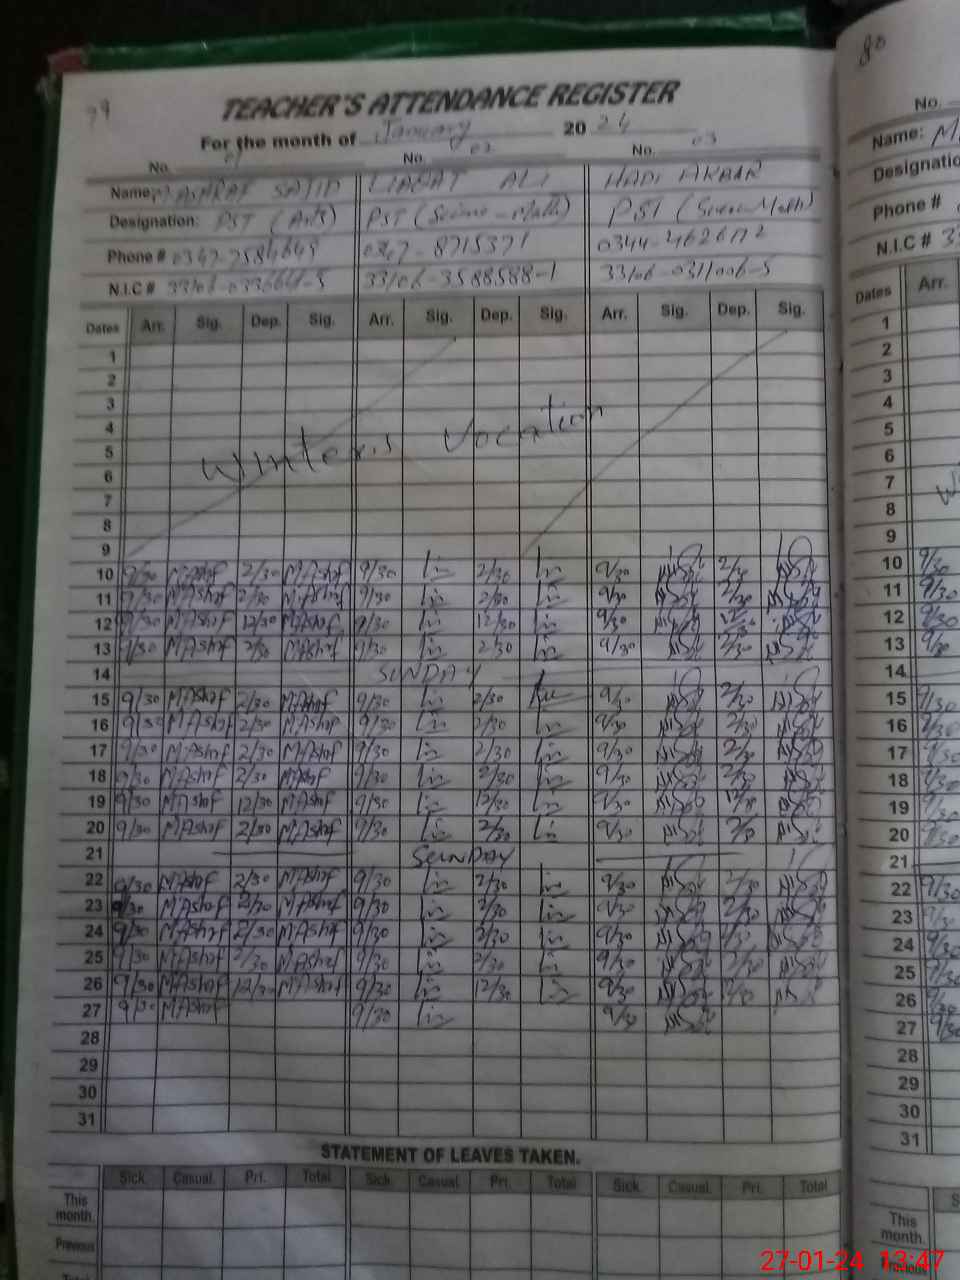 79
TEACHER'S ATTENDANCE REGISTER
For the month of January 20 24
No. 01 No. 02 No. 03
Name: M. ASHRAF SAJID LIAQAT ALI HADI AKBAR
Designation: PST (Arts) PST (Science-Math) PST (Science Math)
Phone # 0347-7584649 0347-8715371 0344-7626172
N.I.C # 33106- 33106-3588588-1 33106-0311006-5
Dates Arr. Sig. Dep. Sig. Arr. Sig. Dep. Sig. Arr. Sig. Dep. Sig.
1
2
3
4
5
Winters Vocation
6
7
8
9
10 9/30 M.Ashraf 2/30 M.Ashraf 9/30 2/30 9/30 2/30
11 9/30 MAshraf 2/30 M.Ashraf 9/30 2/30 9/30 2/30
12 9/30 MAshraf 12/30 MAshraf 9/30 12/30 9/30 12/30
13 9/30 MAshraf 2/30 MAshraf 9/30 2/30 9/30 2/30
14 SUNDAY
15 9/30 MAshraf 2/30 MAshraf 9/30 2/30 9/30 2/30
16 9/30 MAshraf 2/30 M.Ashraf 9/30 2/30 9/30 2/30
17 9/30 MAshraf 2/30 MAshraf 9/30 2/30 9/30 2/30
18 9/30 MAshraf 2/30 MAshraf 9/30 2/30 9/30 2/30
19 9/30 MAshraf 12/30 MAshraf 9/30 12/30 9/30 12/30
20 9/30 MAshraf 2/30 MAshraf 9/30 2/30 9/30 2/30
21 SUNDAY
22 9/30 MAshraf 2/30 MAshraf 9/30 2/30 9/30 2/30
23 9/30 MAshraf 2/30 MAshraf 9/30 2/30 9/30 2/30
24 9/30 MAshraf 2/30 MAshraf 9/30 2/30 9/30 2/30
25 9/30 MAshraf 2/30 MAshraf 9/30 2/30 9/30 2/30
26 9/30 MAshraf 12/30 MAshraf 9/30 12/30 9/30 12/30
27 9/30 MAshraf 9/30 9/30
28
29
30
31
STATEMENT OF LEAVES TAKEN.
Sick. Casual. Pri. Total Sick. Casual Pri. Total Sick. Casual. Pri. Total
This month.
Previous
80
No.
Name: M
Designatio
Phone #
N.I.C # 33
Dates Arr.
1
2
3
4
5
6
7
8
9
10 9/30
11 9/30
12 9/30
13 9/30
14
15 9/30
16 9/30
17 9/30
18 9/30
19 9/30
20 9/30
21
22 9/30
23 9/30
24 9/30
25 9/30
26 9/30
27 9/30
28
29
30
31
This month.
Previous
27-01-24 13:47